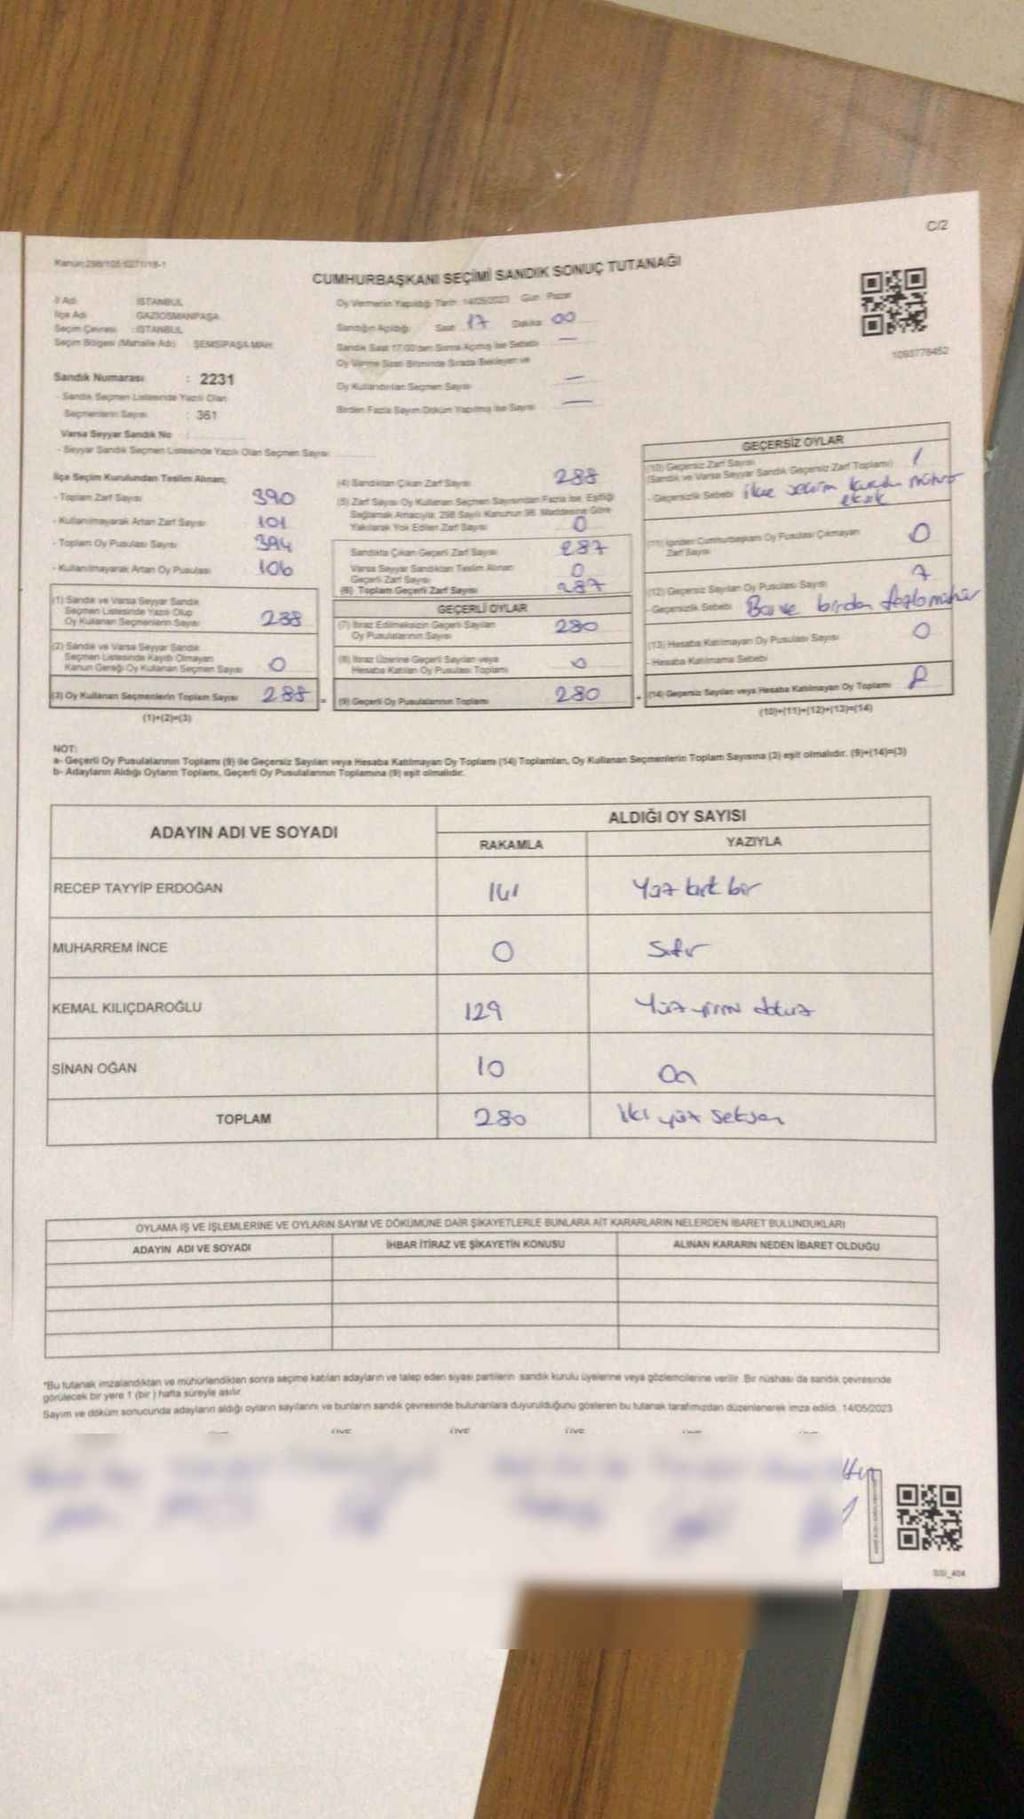 C/2
Kanun:298/105 6271/18-1
CUMHURBAŞKANI SEÇİMİ SANDIK SONUÇ TUTANAĞI
İl Adı : İSTANBUL
İlçe Adı : GAZİOSMANPAŞA
Seçim Çevresi : İSTANBUL
Seçim Bölgesi (Mahalle Adı) : ŞEMSİPAŞA MAH.
Sandık Numarası : 2231
- Sandık Seçmen Listesinde Yazılı Olan
Seçmenlerin Sayısı : 361
Varsa Seyyar Sandık No :
- Seyyar Sandık Seçmen Listesinde Yazılı Olan Seçmen Sayısı
Oy Vermenin Yapıldığı Tarih: 14/05/2023 Gün: Pazar
Sandığın Açıldığı Saat 17 Dakika 00
Sandık Saat 17.00'den Sonra Açılmış İse Sebebi —
Oy Verme Saati Bitiminde Sırada Bekleyen ve
Oy Kullandırılan Seçmen Sayısı —
Birden Fazla Sayım Döküm Yapılmış İse Sayısı —
1093778452
İlçe Seçim Kurulundan Teslim Alınan;
- Toplam Zarf Sayısı 390
- Kullanılmayarak Artan Zarf Sayısı 101
- Toplam Oy Pusulası Sayısı 394
- Kullanılmayarak Artan Oy Pusulası 106
(1) Sandık ve Varsa Seyyar Sandık
Seçmen Listesinde Yazılı Olup
Oy Kullanan Seçmenlerin Sayısı 288
(2) Sandık ve Varsa Seyyar Sandık
Seçmen Listesinde Kaydı Olmayan
Kanun Gereği Oy Kullanan Seçmen Sayısı 0
(3) Oy Kullanan Seçmenlerin Toplam Sayısı 288 =
(1)+(2)=(3)
(4) Sandıktan Çıkan Zarf Sayısı 288
(5) Zarf Sayısı Oy Kullanan Seçmen Sayısından Fazla ise, Eşitliği
Sağlamak Amacıyla; 298 Sayılı Kanunun 98. Maddesine Göre
Yakılarak Yok Edilen Zarf Sayısı 0
Sandıkta Çıkan Geçerli Zarf Sayısı 287
Varsa Seyyar Sandıktan Teslim Alınan
Geçerli Zarf Sayısı 0
(6) Toplam Geçerli Zarf Sayısı 287
GEÇERLİ OYLAR
(7) İtiraz Edilmeksizin Geçerli Sayılan
Oy Pusulalarının Sayısı 280
(8) İtiraz Üzerine Geçerli Sayılan veya
Hesaba Katılan Oy Pusulası Toplamı 0
(9) Geçerli Oy Pusulalarının Toplamı 280 +
GEÇERSİZ OYLAR
(10) Geçersiz Zarf Sayısı 1
(Sandık ve Varsa Seyyar Sandık Geçersiz Zarf Toplamı)
- Geçersizlik Sebebi ilçe seçim kurulu mührü
eksik
(11) İçinden Cumhurbaşkanı Oy Pusulası Çıkmayan
Zarf Sayısı 0
(12) Geçersiz Sayılan Oy Pusulası Sayısı 7
- Geçersizlik Sebebi Boş ve birden fazla mühür
(13) Hesaba Katılmayan Oy Pusulası Sayısı 0
- Hesaba Katılmama Sebebi
(14) Geçersiz Sayılan veya Hesaba Katılmayan Oy Toplamı 8
(10)+(11)+(12)+(13)=(14)
NOT:
a- Geçerli Oy Pusulalarının Toplamı (9) ile Geçersiz Sayılan veya Hesaba Katılmayan Oy Toplamı (14) Toplamları, Oy Kullanan Seçmenlerin Toplam Sayısına (3) eşit olmalıdır. (9)+(14)=(3)
b- Adayların Aldığı Oyların Toplamı, Geçerli Oy Pusulalarının Toplamına (9) eşit olmalıdır.
ADAYIN ADI VE SOYADI
ALDIĞI OY SAYISI
RAKAMLA YAZIYLA
RECEP TAYYİP ERDOĞAN 141 Yüz kırk bir
MUHARREM İNCE 0 Sıfır
KEMAL KILIÇDAROĞLU 129 Yüz yirmi dokuz
SİNAN OĞAN 10 On
TOPLAM 280 İki yüz seksen
OYLAMA İŞ VE İŞLEMLERİNE VE OYLARIN SAYIM VE DÖKÜMÜNE DAİR ŞİKAYETLERLE BUNLARA AİT KARARLARIN NELERDEN İBARET BULUNDUKLARI
ADAYIN ADI VE SOYADI İHBAR İTİRAZ VE ŞİKAYETİN KONUSU ALINAN KARARIN NEDEN İBARET OLDUĞU
*Bu tutanak imzalandıktan ve mühürlendikten sonra seçime katılan adayların ve talep eden siyasi partilerin sandık kurulu üyelerine veya gözlemcilerine verilir. Bir nüshası da sandık çevresinde
görülecek bir yere 1 (bir) hafta süreyle asılır.
Sayım ve döküm sonucunda adayların aldığı oyların sayılarını ve bunların sandık çevresinde bulunanlara duyurulduğunu gösteren bu tutanak tarafımızdan düzenlenerek imza edildi. 14/05/2023
ÜYE ÜYE ÜYE
SSI_404